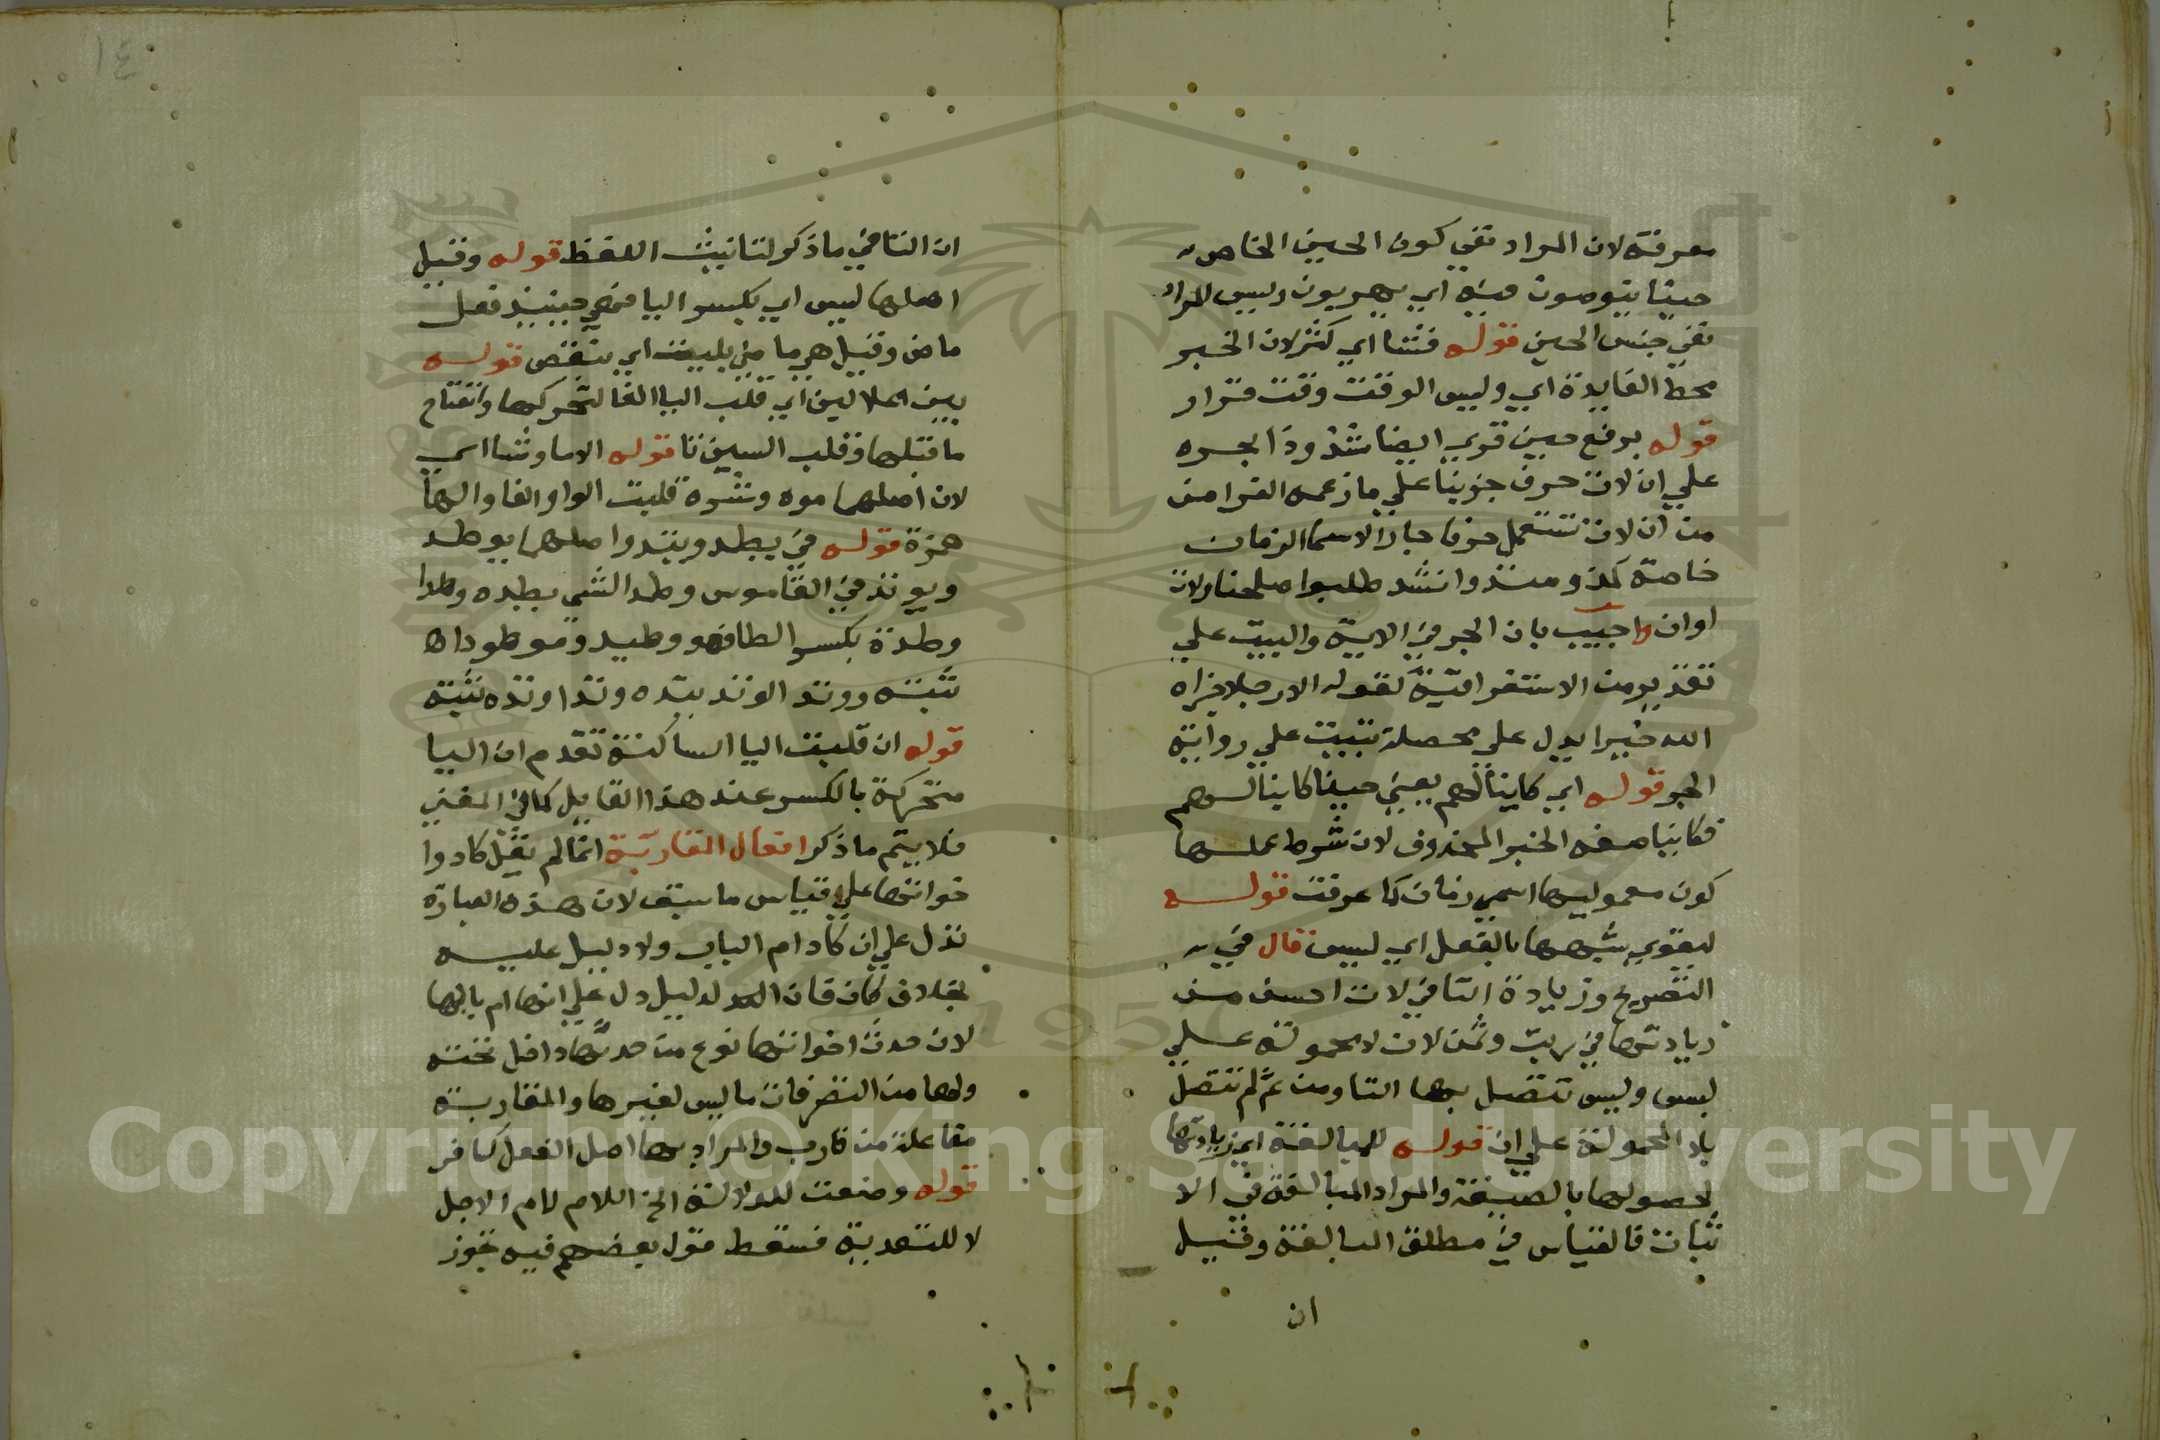 معرفته لان المراد نفي كون الحين الخاص
حينا ينوصون فيه اي يهربون وليس المراد
نفي جنس الحين قوله فشا اي كثر لان الخبر
محط الفايدة اي وليس الوقت وقت فرار
قوله برفع حين قري ايضا شذوذا بجره
علي ان لات حرف جر بناعلي ما زعمه الفرا من
من ان لات تستعمل حرفا جارا لاسما الزمان
خاصة كمذ ومنذ وانشد طلبوا صلحنا ولات
اوان واجيب بان الجر في الاية والبيت علي
تقدير من الاستغراقية كقوله الا رجلا جزاه
الله خيرا يدل علي محصلة تبيت علي رواية
الجر قوله اي كاينا لهم يعني حينا كاينا لهم
فكاينا صفه الخبر المحذوف لان شرط عملها
كون معموليها اسمي زمان كما عرفت قوله
ليقوي شبهها بالفعل اي ليس قال في
التصريح وزيادة التا في لات احسن من
زيادتها في ربت وثمت لان لا محمولة علي
ليس وليس تتصل بها التا ومن ثم لم تتصل
بلا المحمولة علي ان قوله للمبالغة اي زيادتها
لحصولها بالصيغة والمراد المبالغة في الا
ثبات فالقياس في مطلق المبالغة وقيل
ان
١٤
ان التا في ما ذكر لتانيث اللفظ قوله وقيل
اصلها ليس اي بكسر اليا فهي حينيذ فعل
ماض وقيل هي ماضي يليت اي ينقص قوله
بين اعلالين اي قلب اليا الفا لتحركها وانفتاح
ما قبلها وقلب السين تا قوله الاما وشا اي
لان اصلهما موه وشوه قلبت الواو الفا والها
همزة قوله في يطد ويتد واصلهما يوطد
ويوتد في القاموس وطد الشي يطده وطدا
وطدة بكسر الطا فهو وطيد وموطود اذا
ثبته ووتد الوتد يتده وتدا وتده ثبته
قوله ان قلبت اليا الساكنة تقدم ان اليا
متحركة بالكسر عند هذا القايل كما في المغني
فلا يتم ما ذكر افعال المقاربة انما لم يقل كاد وا
خواتها علي قياس ما سبق لان هذه العبارة
تدل علي ان كاد ام الباب ولا دليل عليه
بخلاف كان فان الدليل دل علي انها ام بابها
لان حدث اخواتها نوع من حدثها داخل تحته
ولها من التصرفات ما ليس لغيرها والمقاربة
مفاعلة من قارب والمراد بها اصل الفعل كسافر
قوله وضعت للدلالة الخ اللام لام الاجل
لا للتعدية فسقط قول بعضهم فيه تجوز
Copyright © King Saud University
1957